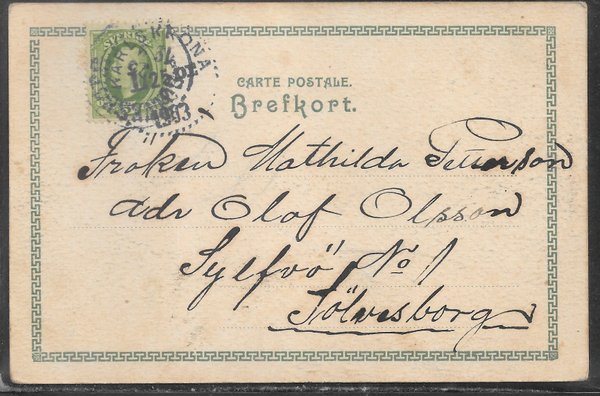 SVERIGE
KRONA
1903
CARTE POSTALE.
Brefkort.
Froken Mathilda Petterson
adr Olof Olsson
Sylfvö No 1
Sölvesborg